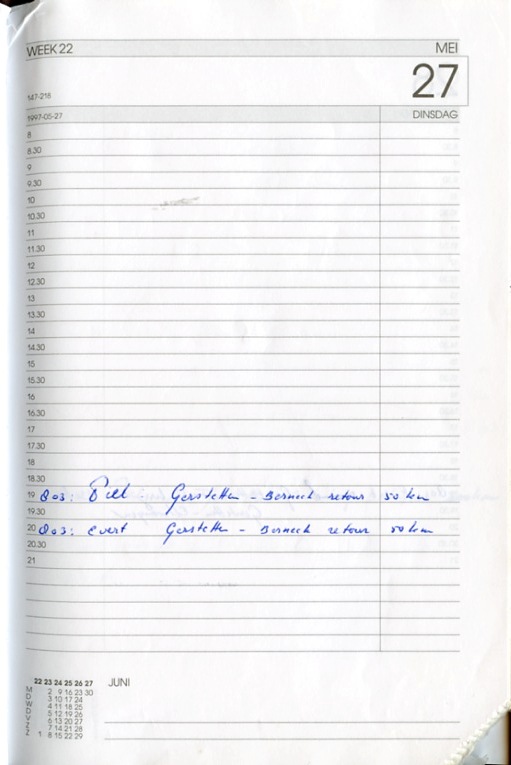 WEEK 22 MEI
27
147-218
1997-05-27 DINSDAG
8
8.30
9
9.30
10
10.30
11
11.30
12
12.30
13
13.30
14
14.30
15
15.30
16
16.30
17
17.30
18
18.30
19 003: Piet - Gerstetten - Berneck retour 50 km
19.30
20 003: Evert Gerstetten - Berneck retour 50 km
20.30
21
22 23 24 25 26 27 JUNI
M 2 9 16 23 30
D 3 10 17 24
W 4 11 18 25
D 5 12 19 26
V 6 13 20 27
Z 7 14 21 28
Z 1 8 15 22 29